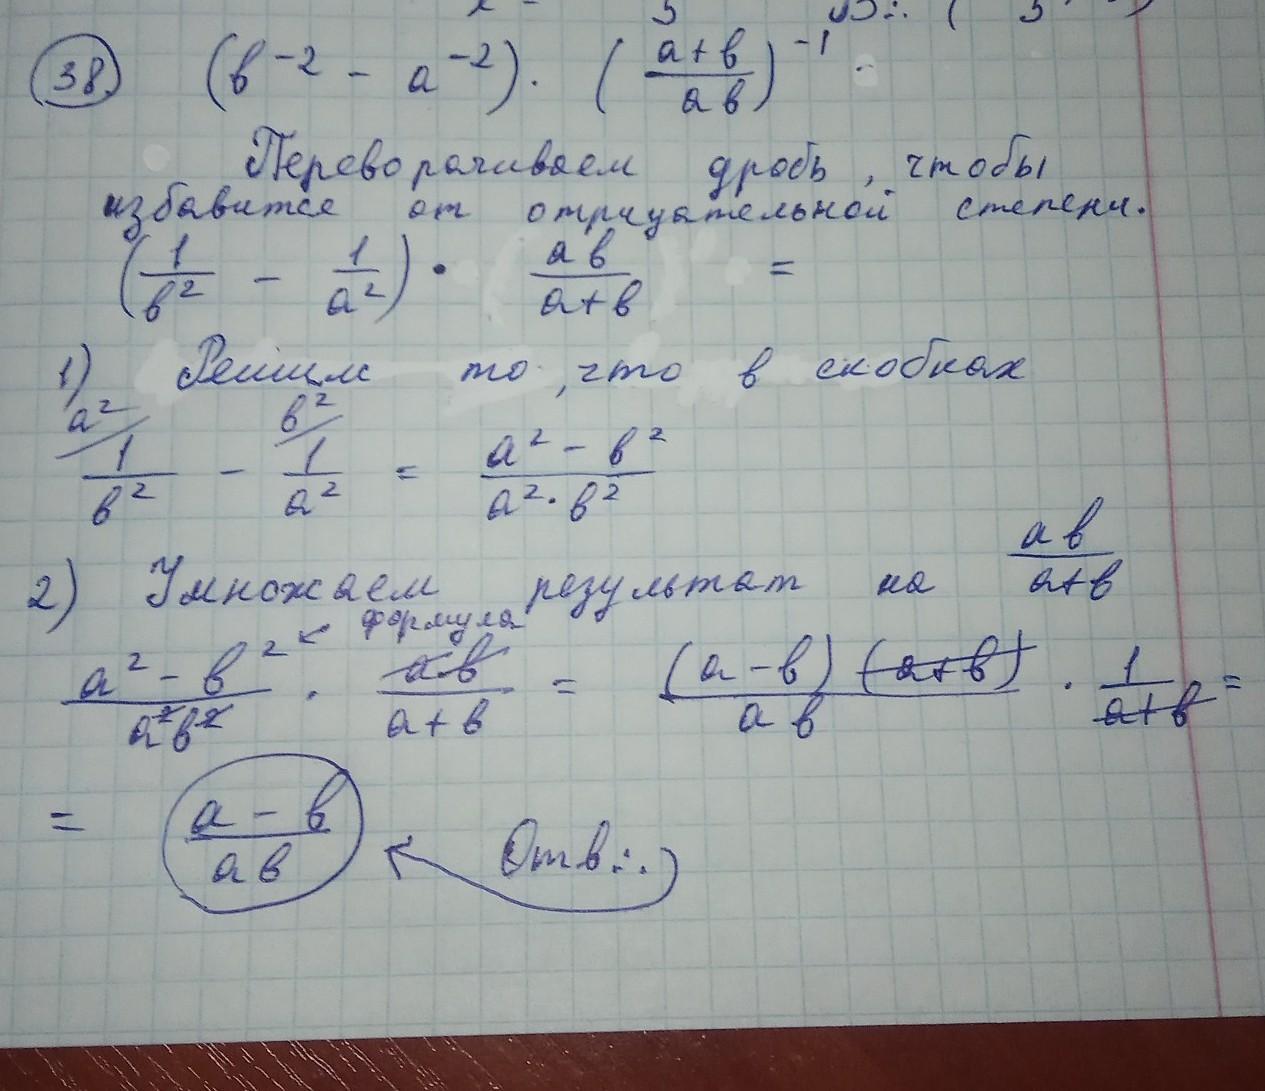 38. (в⁻² - a⁻²) · ((a+в)/(aв))⁻¹
Переворачиваем дробь, чтобы
избавится от отрицательной степени.
(1/в² - 1/a²) · aв/(a+в) =
1) Решим то, что в скобках
a² в²
1/в² - 1/a² = (a² - в²)/(a² · в²)
2) Умножаем результат на aв/(a+в)
формула
(a² - в²)/(a²в²) · aв/(a+в) = (a-в)(a+в)/(aв) · 1/(a+в) =
= (a-в)/(aв) Отв.: